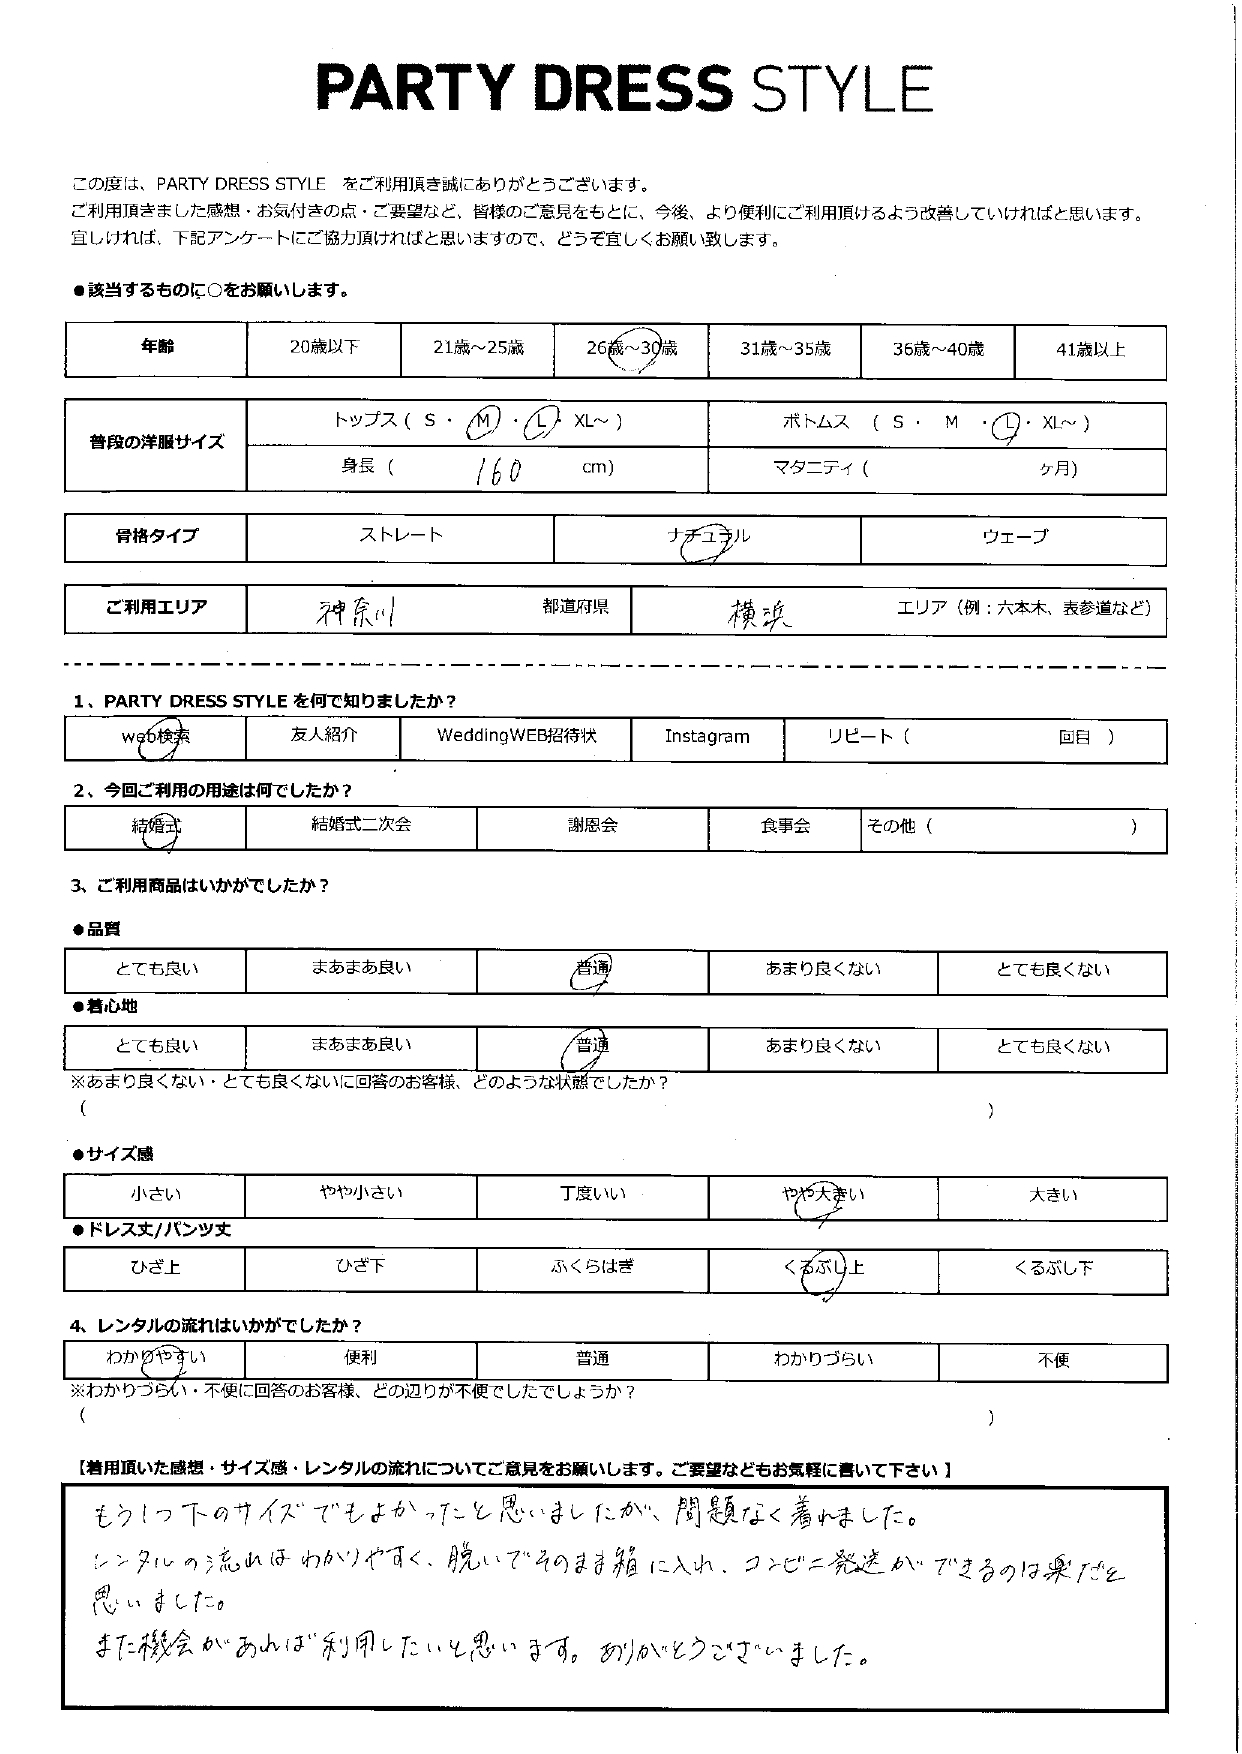 PARTY DRESS STYLE
この度は、PARTY DRESS STYLE をご利用頂き誠にありがとうございます。
ご利用頂きました感想・お気付きの点・ご要望など、皆様のご意見をもとに、今後、より便利にご利用頂けるよう改善していければと思います。
宜しければ、下記アンケートにご協力頂ければと思いますので、どうぞ宜しくお願い致します。
●該当するものに○をお願いします。
年齢 20歳以下 21歳～25歳 26歳～30歳 31歳～35歳 36歳～40歳 41歳以上
普段の洋服サイズ
トップス ( S ・ M ・ L ・ XL～ ) ボトムス ( S ・ M ・ L ・ XL～ )
身長 ( 160 cm) マタニティ ( ヶ月)
骨格タイプ ストレート ナチュラル ウェーブ
ご利用エリア 神奈川 都道府県 横浜 エリア（例：六本木、表参道など）
1、PARTY DRESS STYLE を何で知りましたか？
web検索 友人紹介 WeddingWEB招待状 Instagram リピート ( 回目 )
2、今回ご利用の用途は何でしたか？
結婚式 結婚式二次会 謝恩会 食事会 その他 ( )
3、ご利用商品はいかがでしたか？
●品質
とても良い まあまあ良い 普通 あまり良くない とても良くない
●着心地
とても良い まあまあ良い 普通 あまり良くない とても良くない
※あまり良くない・とても良くないに回答のお客様、どのような状態でしたか？
( )
●サイズ感
小さい やや小さい 丁度いい やや大きい 大きい
●ドレス丈/パンツ丈
ひざ上 ひざ下 ふくらはぎ くるぶし上 くるぶし下
4、レンタルの流れはいかがでしたか？
わかりやすい 便利 普通 わかりづらい 不便
※わかりづらい・不便に回答のお客様、どの辺りが不便でしたでしょうか？
( )
【着用頂いた感想・サイズ感・レンタルの流れについてご意見をお願いします。ご要望などもお気軽に書いて下さい】
もう1つ下のサイズでもよかったと思いましたが、問題なく着れました。
レンタルの流れはわかりやすく、脱いでそのまま箱に入れ、コンビニ発送ができるのは楽だと
思いました。
また機会があれば利用したいと思います。ありがとうございました。